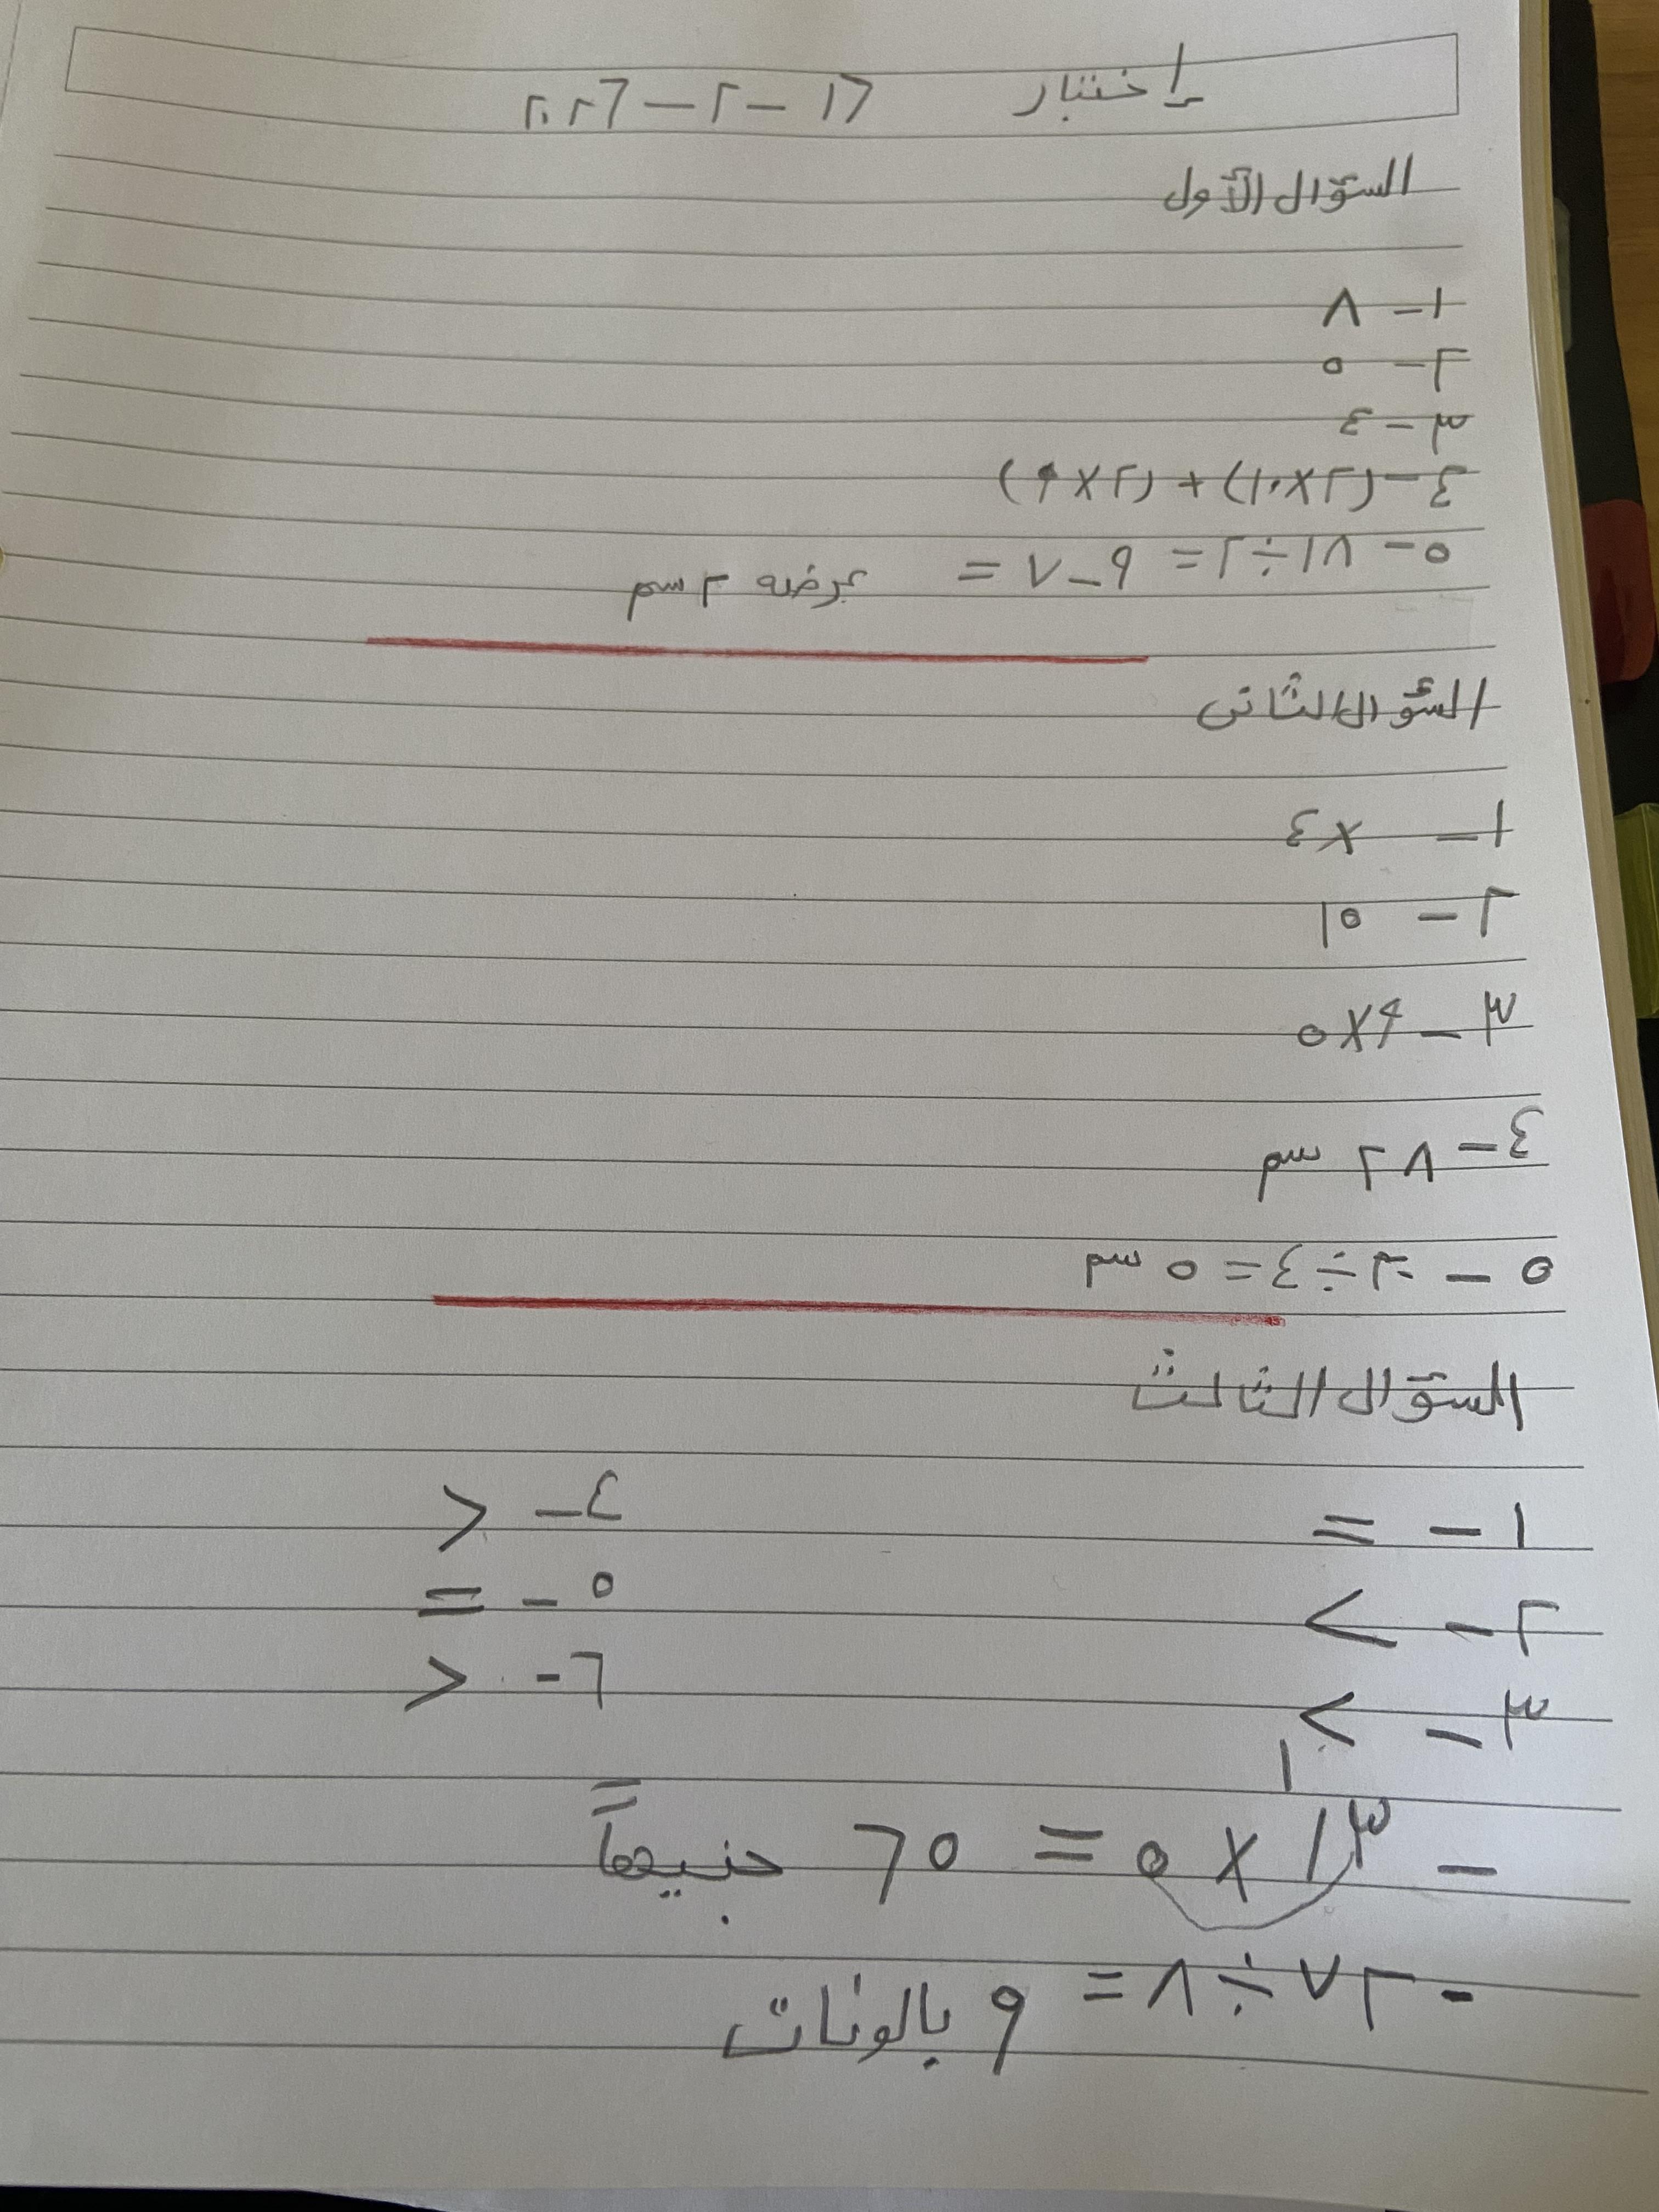 إختبار ١٦-٢-٢٠٢٦
السؤال الأول
١- ٨
٢- ٥
٣- ٤
٤- (٢×١٠) + (٢×٩)
٥- ١٨÷٢= ٩-٧ = عرضه ٢ سم
السؤال الثانى
١- ×٤
٢- ١٥
٣- ٩×٥
٤- ٢٨ سم
٥- ٢٠÷٤=٥ سم
السؤال الثالث
١- = ٤- >
٢- < ٥- =
٣- < ٦- >
١
- ١٣ × ٥ = ٦٥ جنيهاً
- ٧٢÷٨= ٩ بالونات